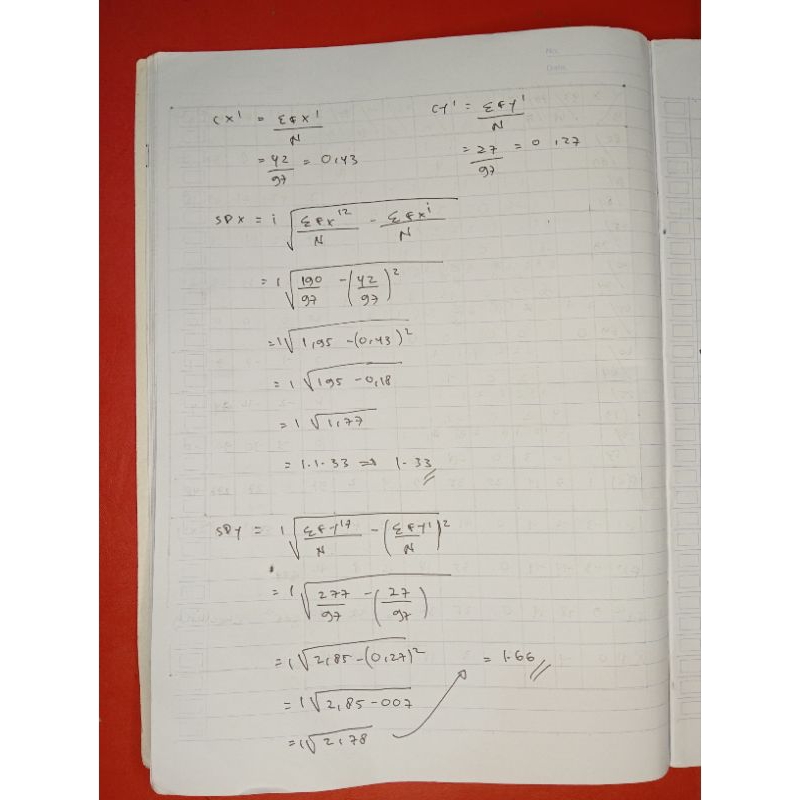 No:
Date:
Cx' = Σfx'/N
= 42/97 = 0,43
Cy' = Σfy'/N
= 27/97 = 0,27
SDx = i √(Σfx'²/N - Σfx'/N)
= 1 √(190/97 - (42/97)²)
= 1 √(1,95 - (0,43)²)
= 1 √(195 - 0,18)
= 1 √(1,77)
= 1.1.33 ⇒ 1.33
SDy = 1 √(Σfy'²/N - (Σfy'/N)²)
= 1 √(277/97 - (27/97))
= 1 √(2,85 - (0,27)²)
= 1 √(2,85 - 007)
= 1 √(2,78)
= 1.66